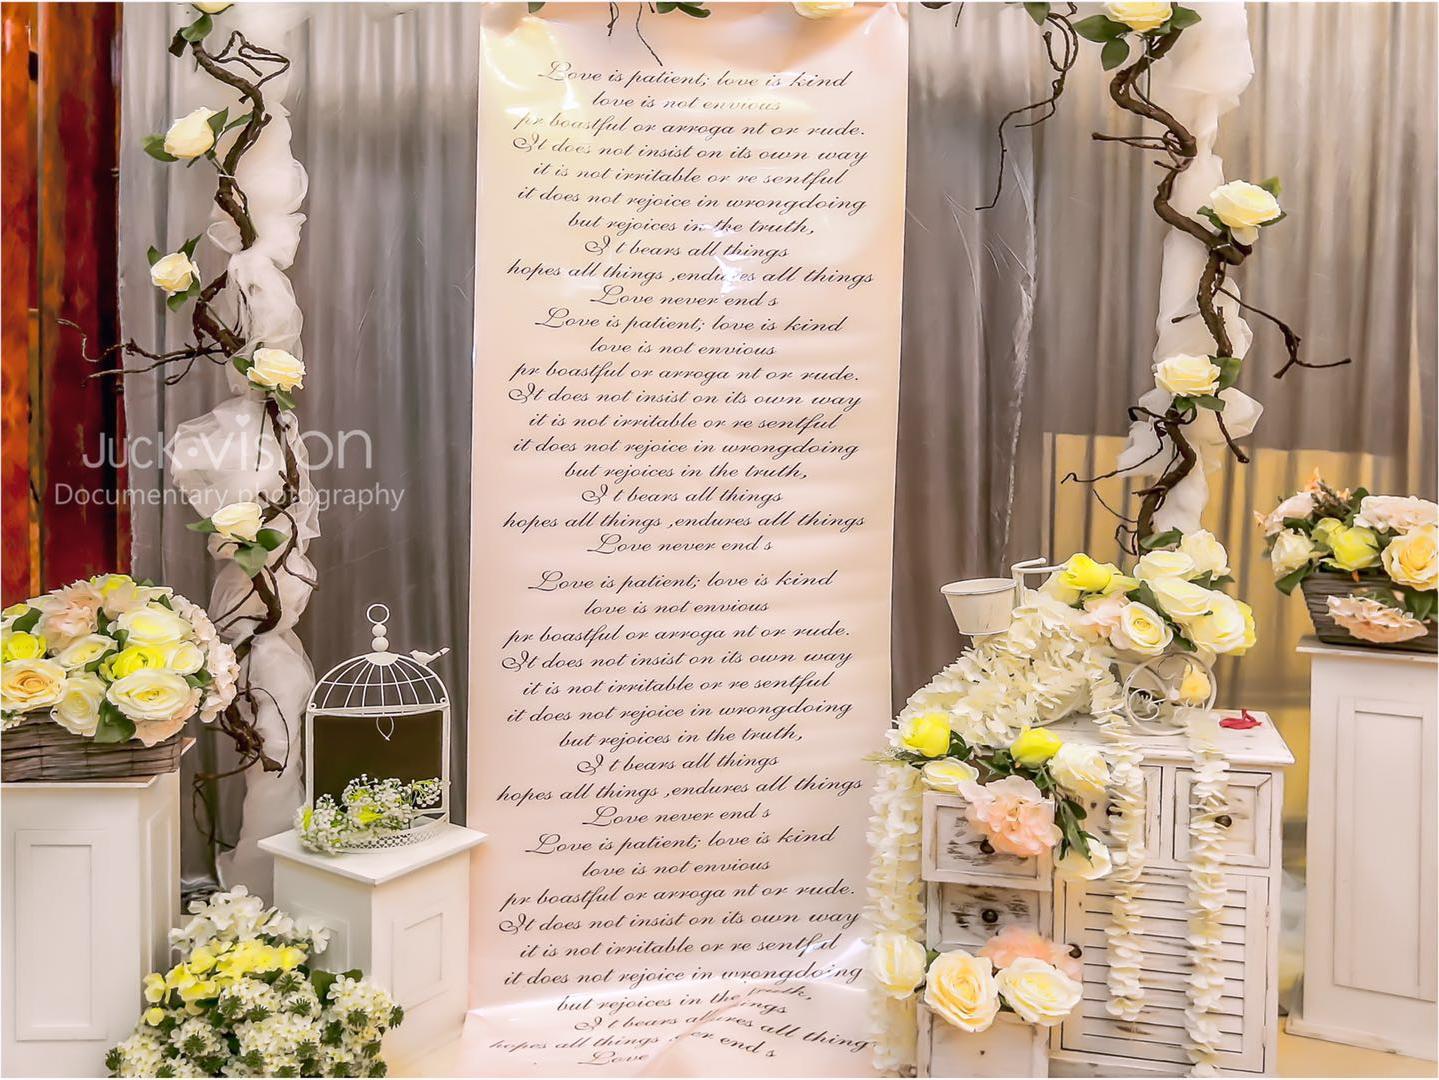 Love is patient; love is kind
love is not envious
pr boastful or arroga nt or rude.
It does not insist on its own way
it is not irritable or re sentful
it does not rejoice in wrongdoing
but rejoices in the truth,
I t bears all things
hopes all things ,endures all things
Love never end s
Love is patient; love is kind
love is not envious
pr boastful or arroga nt or rude.
It does not insist on its own way
it is not irritable or re sentful
it does not rejoice in wrongdoing
but rejoices in the truth,
I t bears all things
hopes all things ,endures all things
Love never end s
Love is patient; love is kind
love is not envious
pr boastful or arroga nt or rude.
It does not insist on its own way
it is not irritable or re sentful
it does not rejoice in wrongdoing
but rejoices in the truth,
I t bears all things
hopes all things ,endures all things
Love never end s
Love is patient; love is kind
love is not envious
pr boastful or arroga nt or rude.
It does not insist on its own way
it is not irritable or re sentful
it does not rejoice in wrongdoing
but rejoices in the truth,
I t bears
hopes all things all thing
Love er end s
Juck·vision
Documentary photography